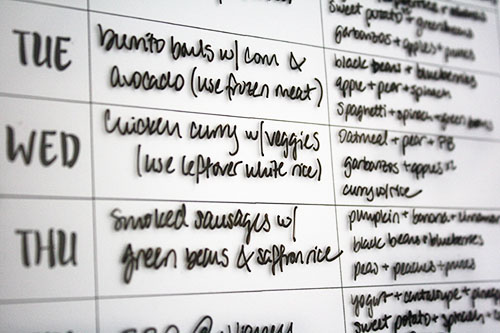 sweet potato + green beans
garbonzos + apples + prunes
TUE
burrito bowls w/ corn &
avocado (use frozen meat)
black beans + blueberries
apple + pear + spinach
spaghetti + spinach + green beans
WED
chicken curry w/ veggies
(use leftover white rice)
oatmeal + pear + PB
garbonzos + apples
curry w/ rice
THU
smoked sausages w/
green beans & saffron rice
pumpkin + banana + cinnamon
black beans + blueberries
peas + peaches + prunes
yogurt + cantaloupe +
sweet potato + spinach +